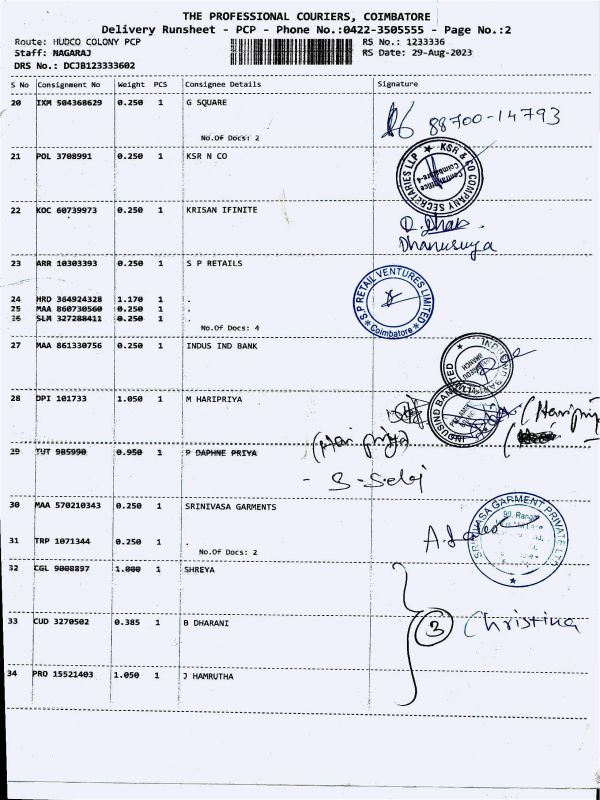 THE PROFESSIONAL COURIERS, COIMBATORE
Delivery Runsheet - PCP - Phone No.:0422-3505555 - Page No.:2
Route: HUDCO COLONY PCP RS No.: 1233336
Staff: NAGARAJ RS Date: 29-Aug-2023
DRS No.: DCJB123333602
S No Consignment No Weight PCS Consignee Details Signature
20 IXM 504368629 0.250 1 G SQUARE
88700-14793
No.Of Docs: 2
21 POL 3708991 0.250 1 KSR N CO
KSR & CO COMPANY SECRETARIES LLP
22 KOC 60739973 0.250 1 KRISAN IFINITE
Dhanusuya
23 ARR 10303393 0.250 1 S P RETAILS
S P RETAIL VENTURES LIMITED
Coimbatore
24 HRD 364924328 1.170 1 .
25 MAA 860730560 0.250 1 .
26 SLM 327288411 0.250 1 .
No.Of Docs: 4
27 MAA 861330756 0.250 1 INDUS IND BANK
28 DPI 101733 1.050 1 M HARIPRIYA
INDUSIND BANK LIMITED
(Haripriya
(Hari priya)
29 TUT 985990 0.950 1 P DAPHNE PRIYA
30 MAA 570210343 0.250 1 SRINIVASA GARMENTS
SRINIVASA GARMENT PRIVATE LTD
31 TRP 1071344 0.250 1 .
No.Of Docs: 2
32 CGL 9008897 1.000 1 SHREYA
33 CUD 3270502 0.385 1 B DHARANI
3 Christina
34 PRO 15521403 1.050 1 J HAMRUTHA